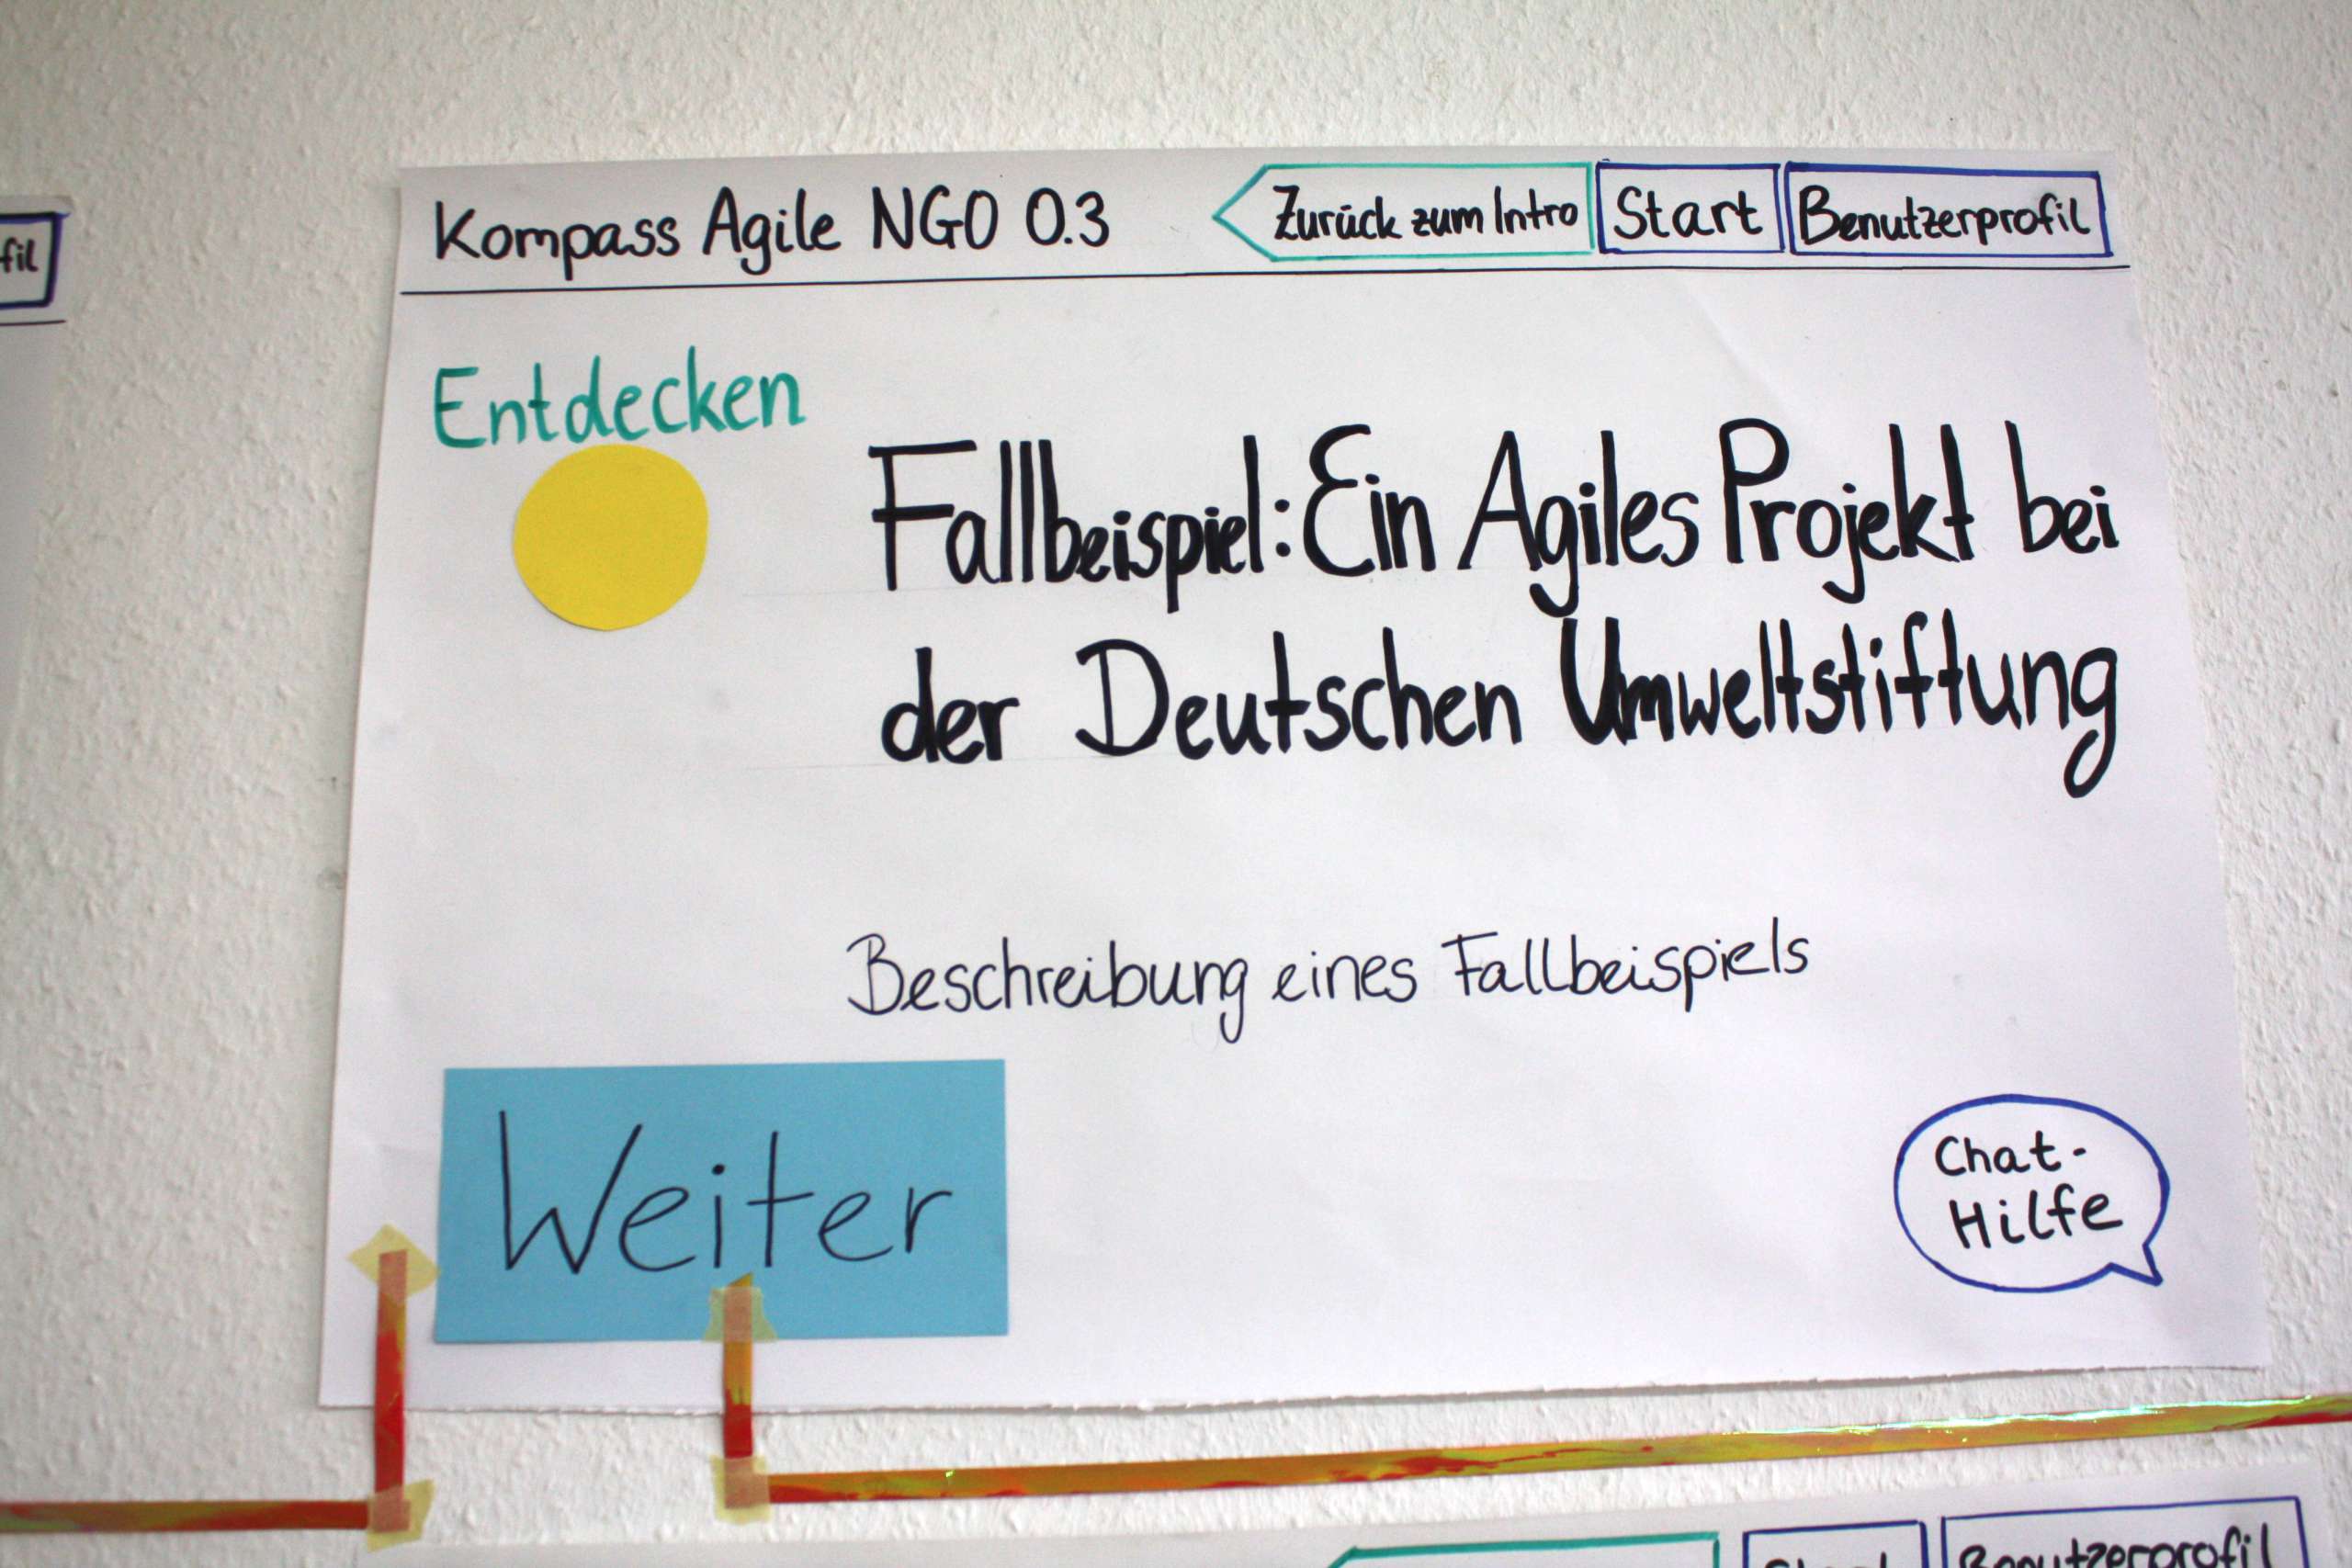 Kompass Agile NGO 0.3
Zurück zum Intro
Start
Benutzerprofil
fil
Entdecken
Fallbeispiel: Ein Agiles Projekt bei
der Deutschen Umweltstiftung
Beschreibung eines Fallbeispiels
Weiter
Chat-
Hilfe
Start
Benutzerprofil